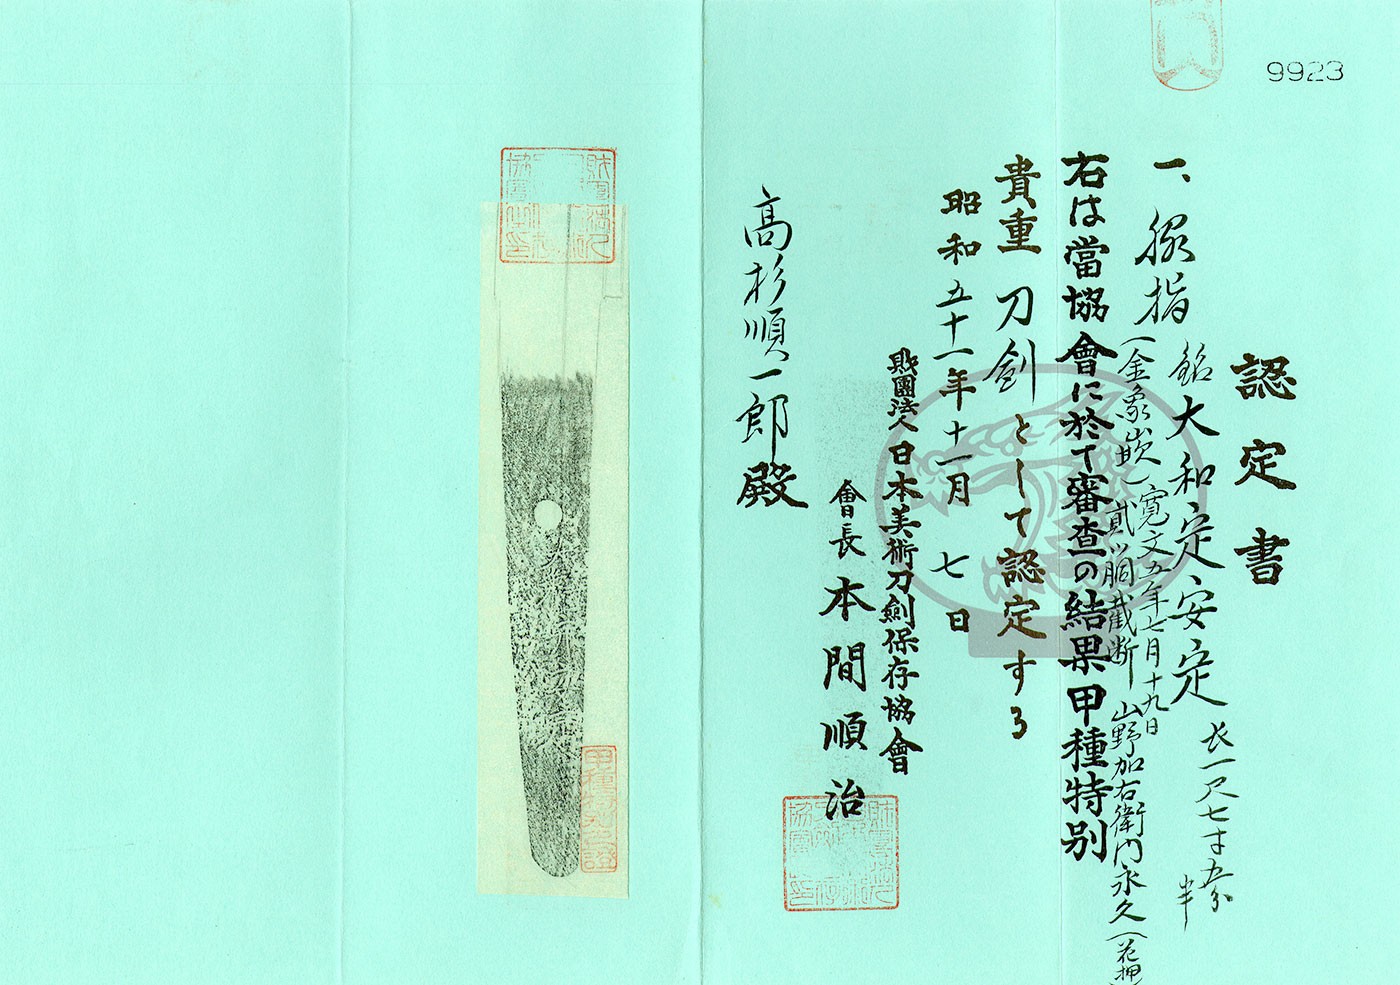 9923
認定書
一、脇指 銘大和定安定 長一尺七寸五分半
(金象嵌)寛文五年七月十九日
貳ツ胴截断 山野加右衛門永久(花押)
右は當協會に於て審査の結果甲種特別
貴重刀剣として認定する
昭和五十一年十一月七日
財團法人日本美術刀劍保存協會
會長 本間順治
高杉順一郎殿